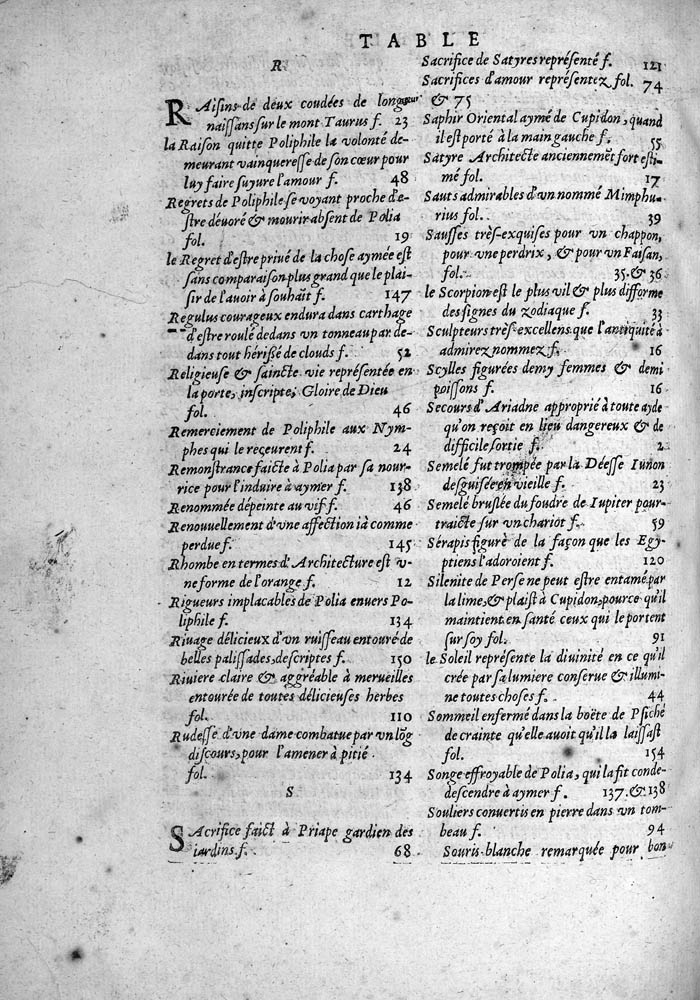 TABLE
R
RAisins de deux coudées de longueur
naissans sur le mont Taurus f. 23
la Raison quitte Poliphile la volonté de-
meurant vainqueresse de son cœur pour
luy faire suyure l'amour f. 48
Regrets de Poliphile se voyant proche d'e-
stre deuoré & mourir absent de Polia
fol. 19
le Regret d'estre priué de la chose aymée est
sans comparaison plus grand que le plai-
sir de l'auoir à souhait f. 147
Regulus courageux endura dans carthage
d'estre roulé dedans vn tonneau par de-
dans tout hérissé de clouds f. 52
Religieuse & saincte vie représentée en
la porte, inscripte, Gloire de Dieu
fol. 46
Remerciement de Poliphile aux Nym-
phes qui le reçeurent f. 24
Remonstrance faicte à Polia par sa nour-
rice pour l'induire à aymer f. 138
Renommée dépeinte au vif f. 46
Renouuellement d'vne affection ià comme
perdue f. 145
Rhombe en termes d'Architecture est v-
ne forme de l'orange f. 12
Rigueurs implacables de Polia enuers Po-
liphile f. 134
Riuage délicieux d'vn ruisseau entouré de
belles palissades, descriptes f. 150
Riuiere claire & aggréable à merueilles
entourée de toutes délicieuses herbes
fol. 110
Rudesse d'vne dame combatue par vn lõg
discours, pour l'amener à pitié
fol. 134
S
SAcrifice faict à Priape gardien des
iardins f. 68
Sacrifice de Satyres représenté f. 121
Sacrifices d'amour représentez fol. 74
& 75
Saphir Oriental aymé de Cupidon, quand
il est porté à la main gauche f. 55
Satyre Architecte anciennemẽt fort esti-
mé fol. 17
Sauts admirables d'vn nommé Mimphu-
rius fol. 39
Sausses très-exquises pour vn chappon,
pour vne perdrix, & pour vn Faisan,
fol. 35. & 36
le Scorpion est le plus vil & plus difforme
des signes du zodiaque f. 33
Sculpteurs très-excellens que l'antiquité à
admirez nommez f. 16
Scylles figurées demy femmes & demi
poissons f. 16
Secours d'Ariadne approprié à toute ayde
qu'on reçoit en lieu dangereux & de
difficile sortie f. 2
Semelé fut trompée par la Déesse Iunon
desguisée en vieille f. 23
Semelé bruslée du foudre de Iupiter pour-
traicte sur vn chariot f. 59
Sérapis figuré de la façon que les Egy-
ptiens l'adoroient f. 120
Silenite de Perse ne peut estre entamé par
la lime, & plaist à Cupidon, pource qu'il
maintient en santé ceux qui le portent
sur soy fol. 91
le Soleil représente la diuinité en ce qu'il
crée par sa lumiere conserue & illumi-
ne toutes choses f. 44
Sommeil enfermé dans la boëte de Psiché
de crainte qu'elle auoit qu'il la laissast
fol. 154
Songe effroyable de Polia, qui la fit conde-
descendre à aymer f. 137. & 138
Souliers conuertis en pierre dans vn tom-
beau f. 94
Souris blanche remarquée pour bon